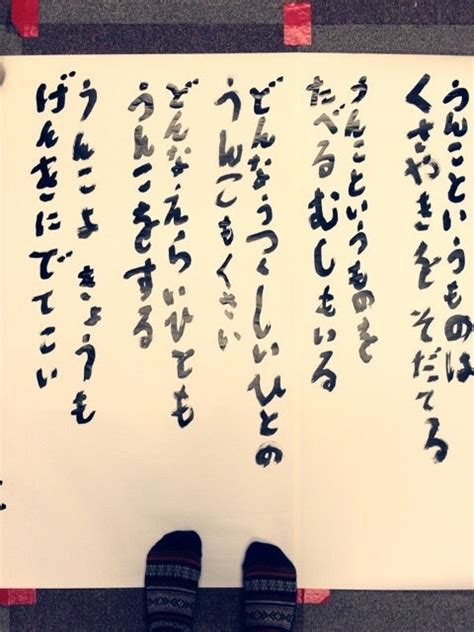 うんこというものは
くさやきをそだてる
うんこというものを
たべるむしもいる
どんなうつくしいひとの
うんこもくさい
どんなえらいひとも
うんこをする
うんこよ きょうも
げんきにでてこい